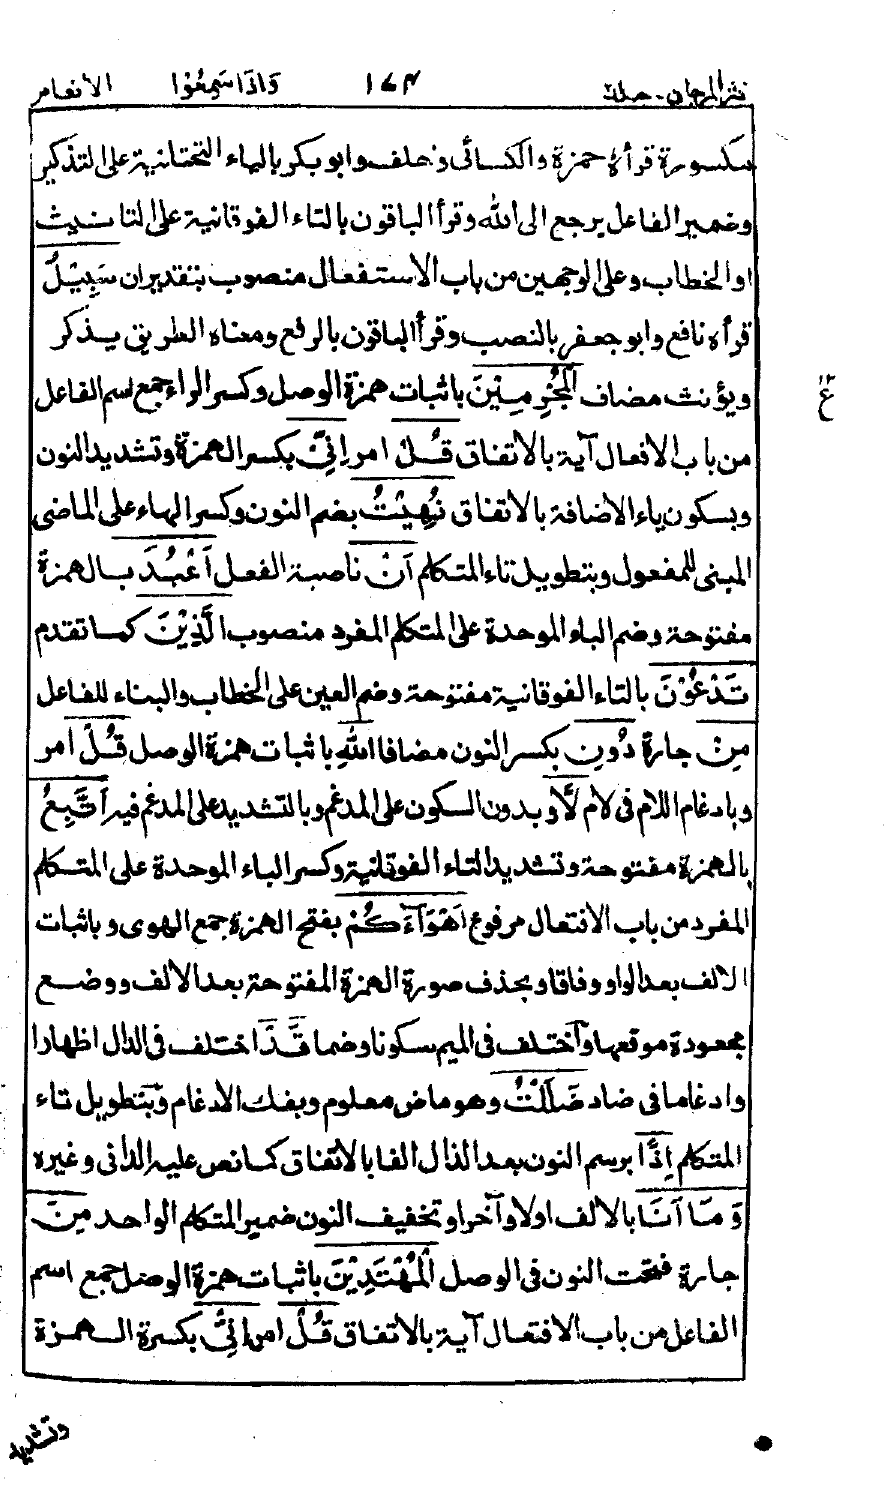 نثر المرجان - جلد٢ ١٧٤ وَاِذَا سَمِعُوْا الانعام
مكسورة قرأه حمزة والكسائى وخلف وابو بكر بالياء التحتانية على التذكير
وضمير الفاعل يرجع الى الله وقرأ الباقون بالتاء الفوقانية على التانيث
او الخطاب وعلى الوجهين من باب الاستفعال منصوب بتقدير ان سَبِيْلُ
قرأه نافع وابو جعفر بالنصب وقرأ الباقون بالرفع ومعناه الطريق يذكر
ويؤنث مضاف الْمُجْرِمِيْنَ باثبات همزة الوصل وكسر الراء جمع اسم الفاعل
من باب الافعال آية بالاتفاق قُلْ امر اِنِّيْ بكسر الهمزة وتشديد النون
وبسكون ياء الاضافة بالاتفاق نُهِيْتُ بضم النون وكسر الهاء على الماضى
المبنى للمفعول وبتطويل تاء المتكلم اَنْ ناصبة الفعل اَعْبُدَ بالهمزة
مفتوحة وضم الباء الموحدة على المتكلم المفرد منصوب الَّذِيْنَ كما تقدم
تَدْعُوْنَ بالتاء الفوقانية مفتوحة وضم العين على الخطاب والبناء للفاعل
مِنْ جارة دُوْنِ بكسر النون مضافا اللهِ باثبات همزة الوصل قُلْ امر
وبادغام اللام فى لام لَّا وبدون السكون على المدغم وبالتشديد على المدغم فيه اَتَّبِعُ
بالهمزة مفتوحة وتشديد التاء الفوقانية وكسر الباء الموحدة على المتكلم
المفرد من باب الافتعال مرفوع اَهْوَآءَكُمْ بفتح الهمزة جمع الهوى و باثبات
الالف بعد الواو وفاقا وبحذف صورة الهمزة المفتوحة بعد الالف ووضع
مجعودة موقعها واختلف فى الميم سكونا وضما قَدْ اختلف فى الدال اظهارا
وادغاما فى ضاد ضَلَلْتُ وهو ماض معلوم وبفك الادغام وبتطويل تاء
المتكلم اِذًا برسم النون بعد الذال الفا بالاتفاق كما نص عليه الدانى وغيره
وَّمَا اَنَا بالالف اولا وآخرا وتخفيف النون ضمير المتكلم الواحد مِنَ
جارة فتحت النون فى الوصل الْمُهْتَدِيْنَ باثبات همزة الوصل جمع اسم
الفاعل من باب الافتعال آية بالاتفاق قُلْ امر اِنِّيْ بكسرة الهمزة
وتشديد
١٢
ع